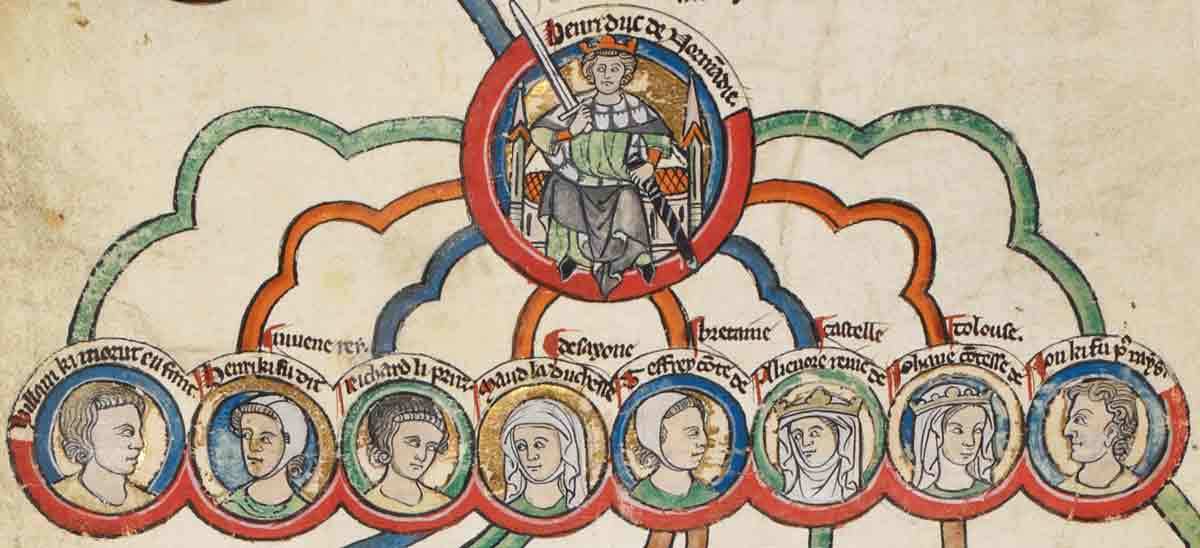 Henri duc de Normādie.
Willam ki morut enfant
Henri ki fu dit
iuuene rey.
Richard li prinz
Maud la duchesse
de saxone
Geffrey cōte de
bretaine
Alienore reine de
castelle
Iohane cōtesse de
tolouse.
Ion ki fu